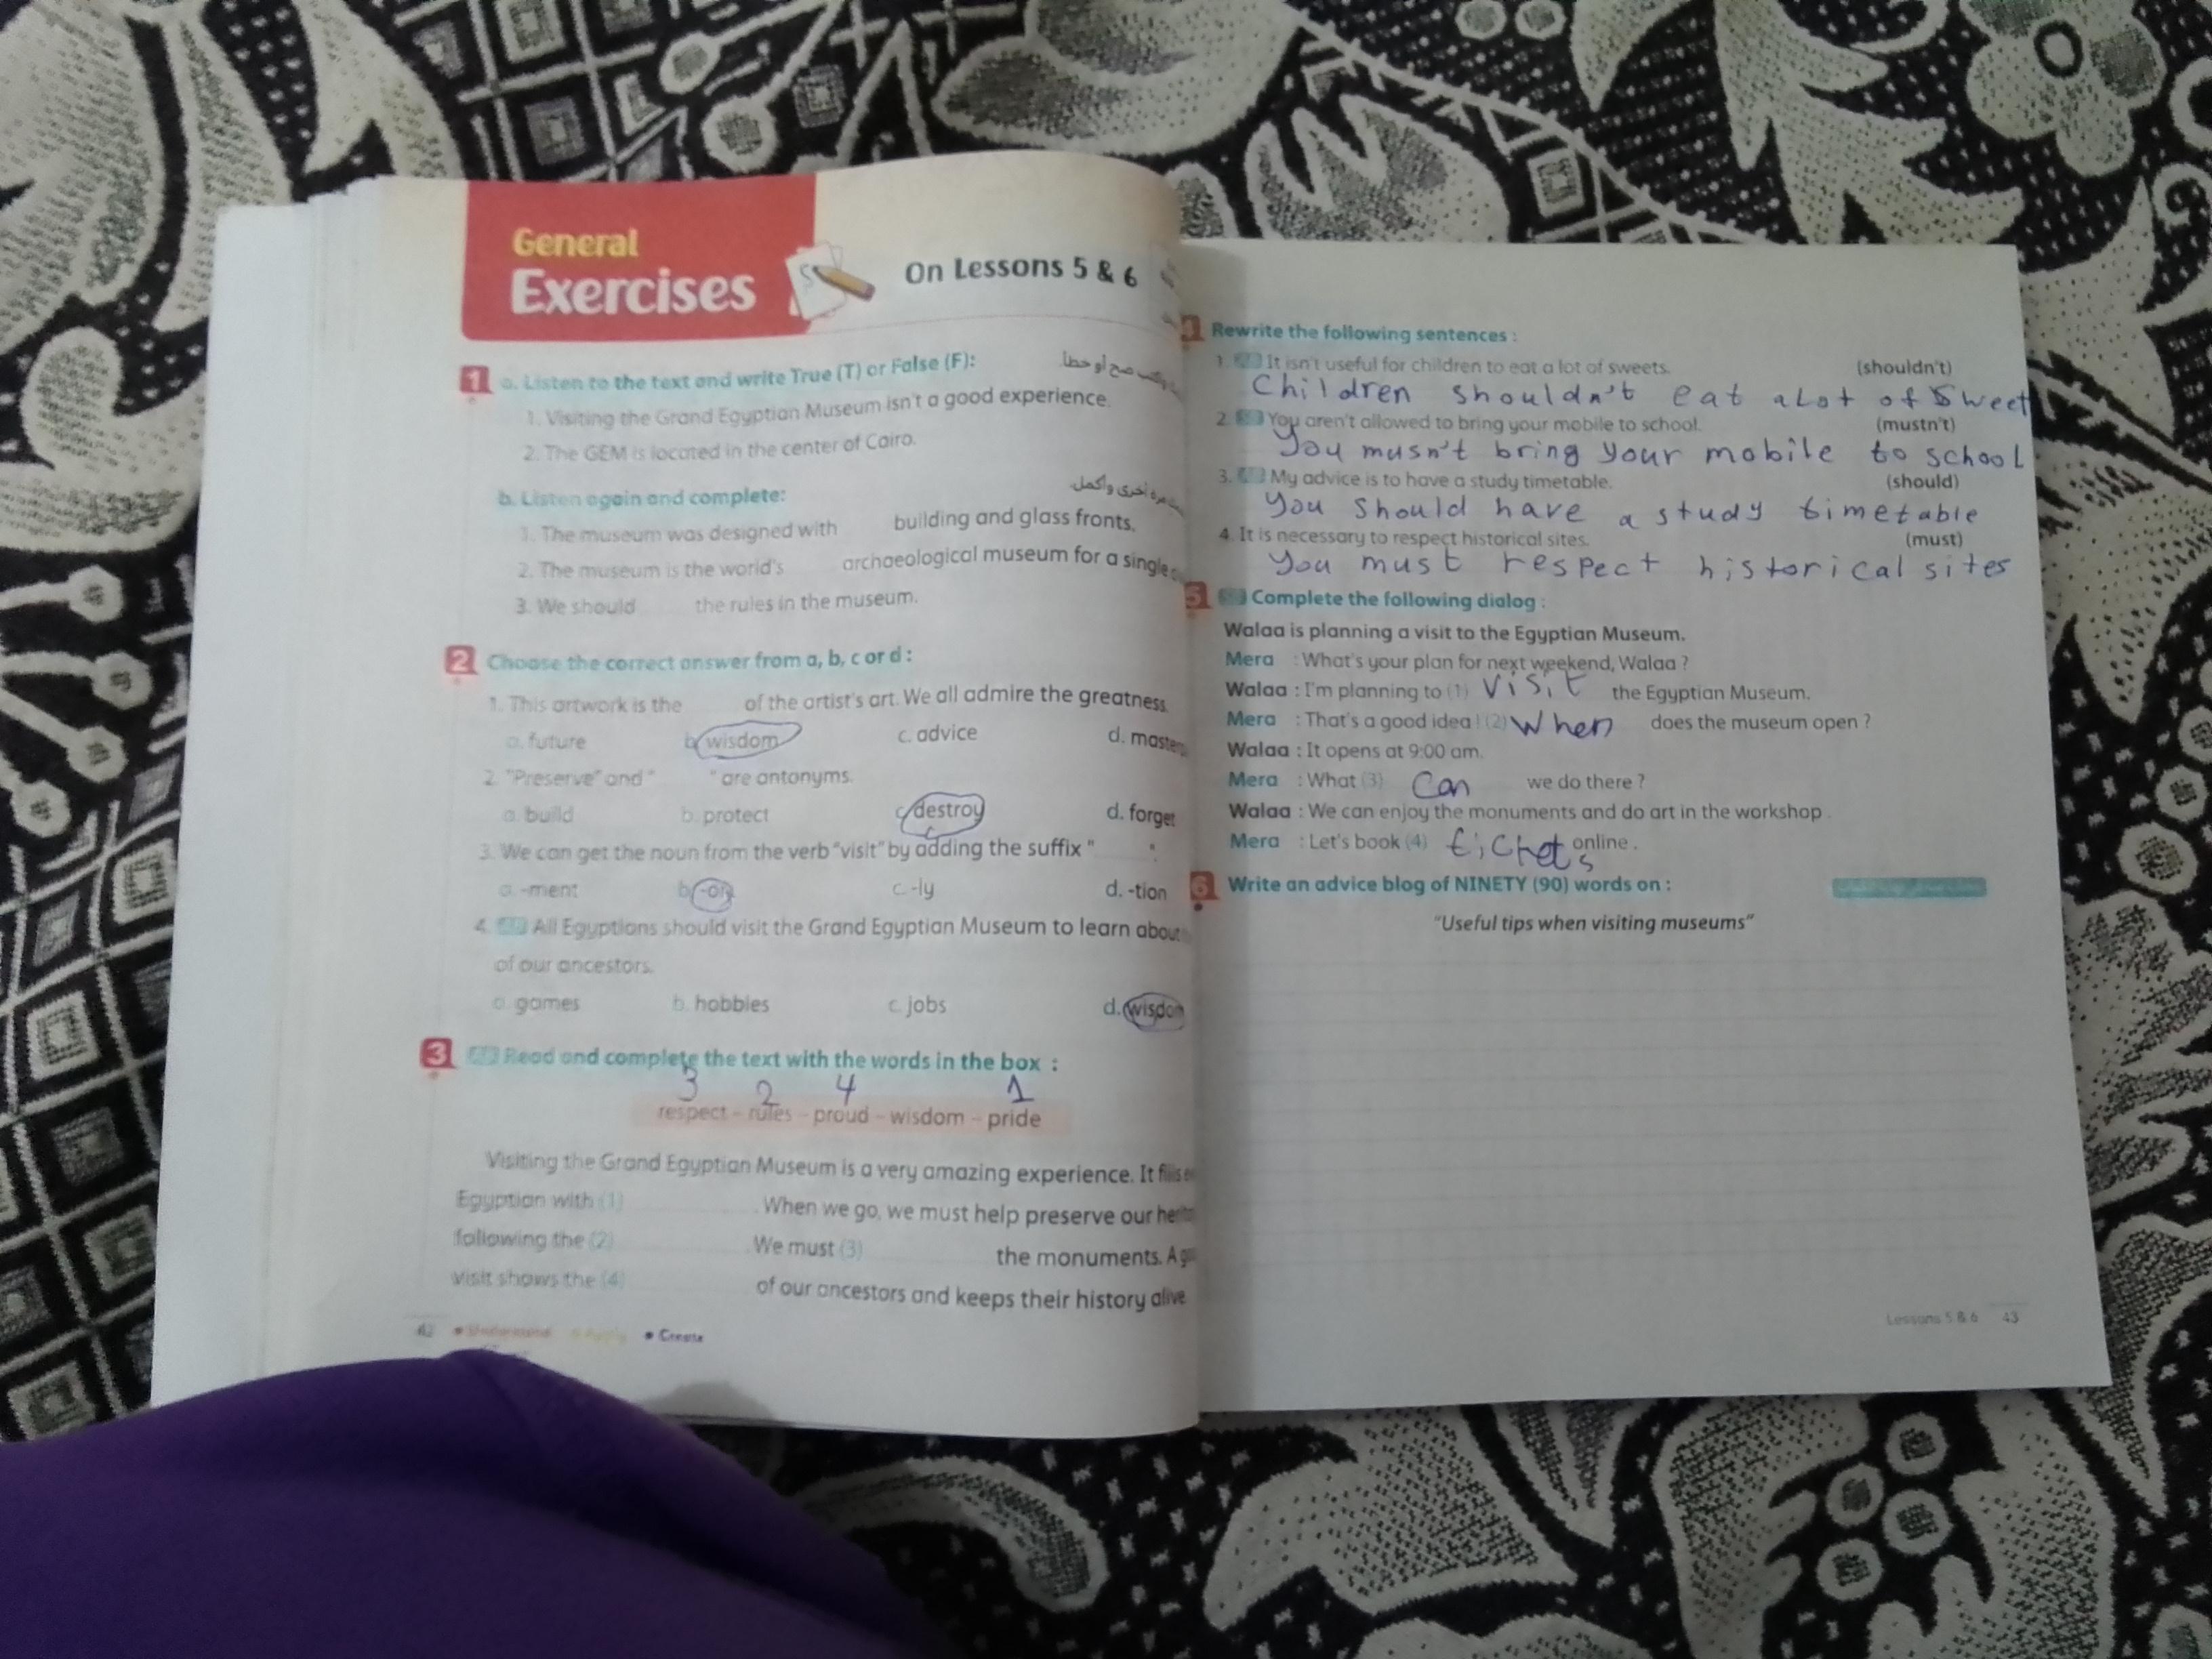 General
Exercises
On Lessons 5 & 6
1 a. Listen to the text and write True (T) or False (F):
صح أو خطأ.
1. Visiting the Grand Egyptian Museum isn't a good experience.
2. The GEM is located in the center of Cairo.
b. Listen again and complete:
مرة أخرى وأكمل.
1. The museum was designed with building and glass fronts.
2. The museum is the world's archaeological museum for a single
3. We should the rules in the museum.
2 Choose the correct answer from a, b, c or d :
1. This artwork is the of the artist's art. We all admire the greatness.
a. future b. wisdom c. advice d.
2. "Preserve" and " " are antonyms.
a. build b. protect c. destroy d. forget
3. We can get the noun from the verb "visit" by adding the suffix " ".
a. -ment b. -or c. -ly d. -tion
4. All Egyptians should visit the Grand Egyptian Museum to learn about
of our ancestors.
a. games b. hobbies c. jobs d. wisdom
3 Read and complete the text with the words in the box :
3 2 4 1
respect - rules - proud - wisdom - pride
Visiting the Grand Egyptian Museum is a very amazing experience. It fills
Egyptian with (1) . When we go, we must help preserve our
following the (2) . We must (3) the monuments. A
visit shows the (4) of our ancestors and keeps their history alive
42 • Understand • Apply • Create
4 Rewrite the following sentences :
1. It isn't useful for children to eat a lot of sweets. (shouldn't)
Children shouldn't eat a Lot of Sweet
2. You aren't allowed to bring your mobile to school. (mustn't)
You musn't bring your mobile to school
3. My advice is to have a study timetable. (should)
You should have a study timetable
4. It is necessary to respect historical sites. (must)
You must respect historical sites
5 Complete the following dialog :
Walaa is planning a visit to the Egyptian Museum.
Mera : What's your plan for next weekend, Walaa ?
Walaa : I'm planning to (1) visit the Egyptian Museum.
Mera : That's a good idea ! (2) When does the museum open ?
Walaa : It opens at 9:00 am.
Mera : What (3) Can we do there ?
Walaa : We can enjoy the monuments and do art in the workshop .
Mera : Let's book (4) tickets online .
6 Write an advice blog of NINETY (90) words on :
"Useful tips when visiting museums"
Lessons 5 & 6 43